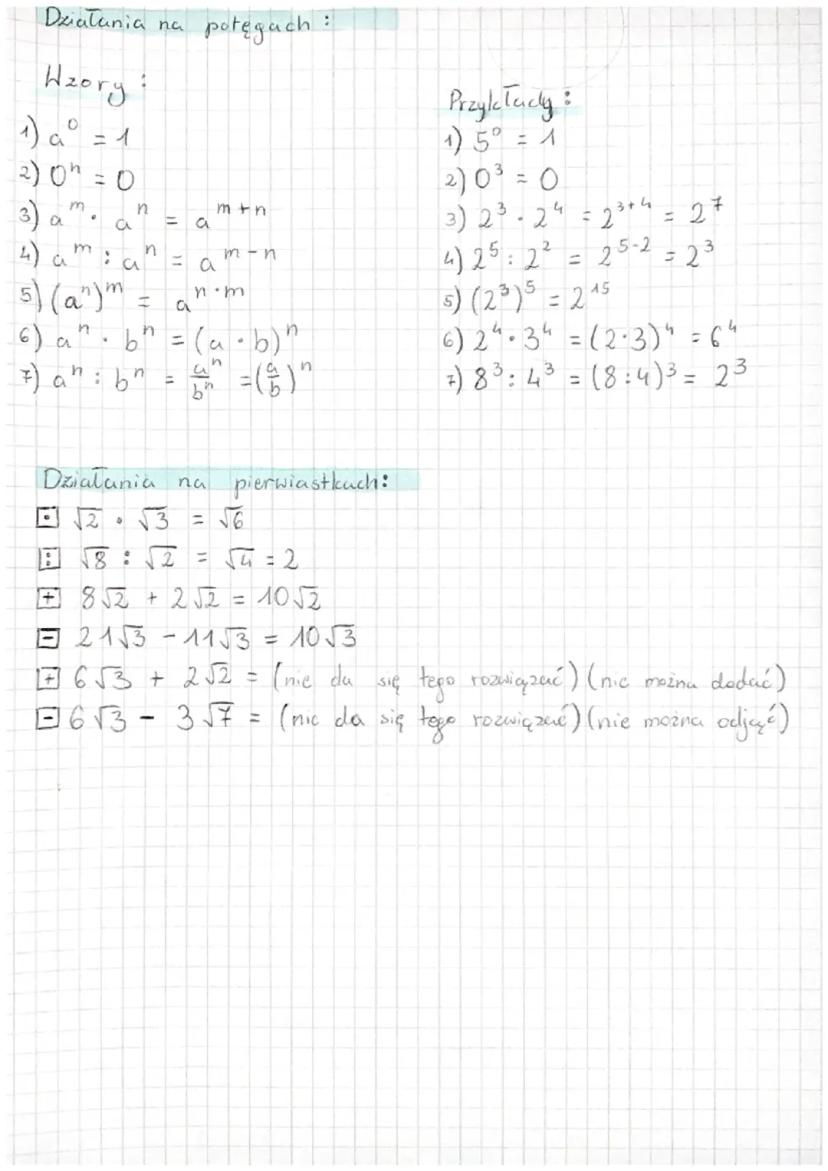 Działania na potęgach :
Wzory :
1) a⁰ = 1
2) 0ⁿ = 0
3) aᵐ · aⁿ = aᵐ⁺ⁿ
4) aᵐ : aⁿ = aᵐ⁻ⁿ
5) (aⁿ)ᵐ = aⁿ·ᵐ
6) aⁿ · bⁿ = (a · b)ⁿ
7) aⁿ : bⁿ = aⁿ/bⁿ = (a/b)ⁿ
Przykłady :
1) 5⁰ = 1
2) 0³ = 0
3) 2³ · 2⁴ = 2³⁺⁴ = 2⁷
4) 2⁵ : 2² = 2⁵⁻² = 2³
5) (2³)⁵ = 2¹⁵
6) 2⁴ · 3⁴ = (2·3)⁴ = 6⁴
7) 8³ : 4³ = (8:4)³ = 2³
Działania na pierwiastkach:
⊡ √2 · √3 = √6
[:] √8 : √2 = √4 = 2
⊞ 8√2 + 2√2 = 10√2
⊟ 21√3 - 11√3 = 10√3
⊞ 6√3 + 2√2 = (nie da się tego rozwiązać) (nie można dodać)
⊟ 6√3 - 3√7 = (nie da się tego rozwiązać) (nie można odjąć)